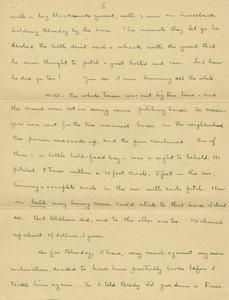 5.
with a big blacksmith's quirt, with a man on horseback
holding Bludog by the ears. The minute they let go he
the bottle devil such a whack with the quirt that
he was thought to pitch - just bolted and ran. And how
he did go too! You see I was learning all the while.
Well - the whole town was out by this time - and
the crowd were set on seeing some pitching horses so messen-
gers were sent for the two meanest horses in the neighborhood,
the purses made up, and the fun continued. One of
them - a little bald-faced bay - was a sight to behold. He
pitched 8 times within a 10 foot circle, 5 feet in the air,
turning a complete circle in the air with each pitch. How
in hell any living man could stick to that horse I don't
see. But Oldham did, and to the other one too. He cleaned
up about 15 dollars I guess.
As for Bludog, I have, very much against my own
inclination, decided to have him partially broke before I
tackle him again. So I told Brady I'd give him a fair